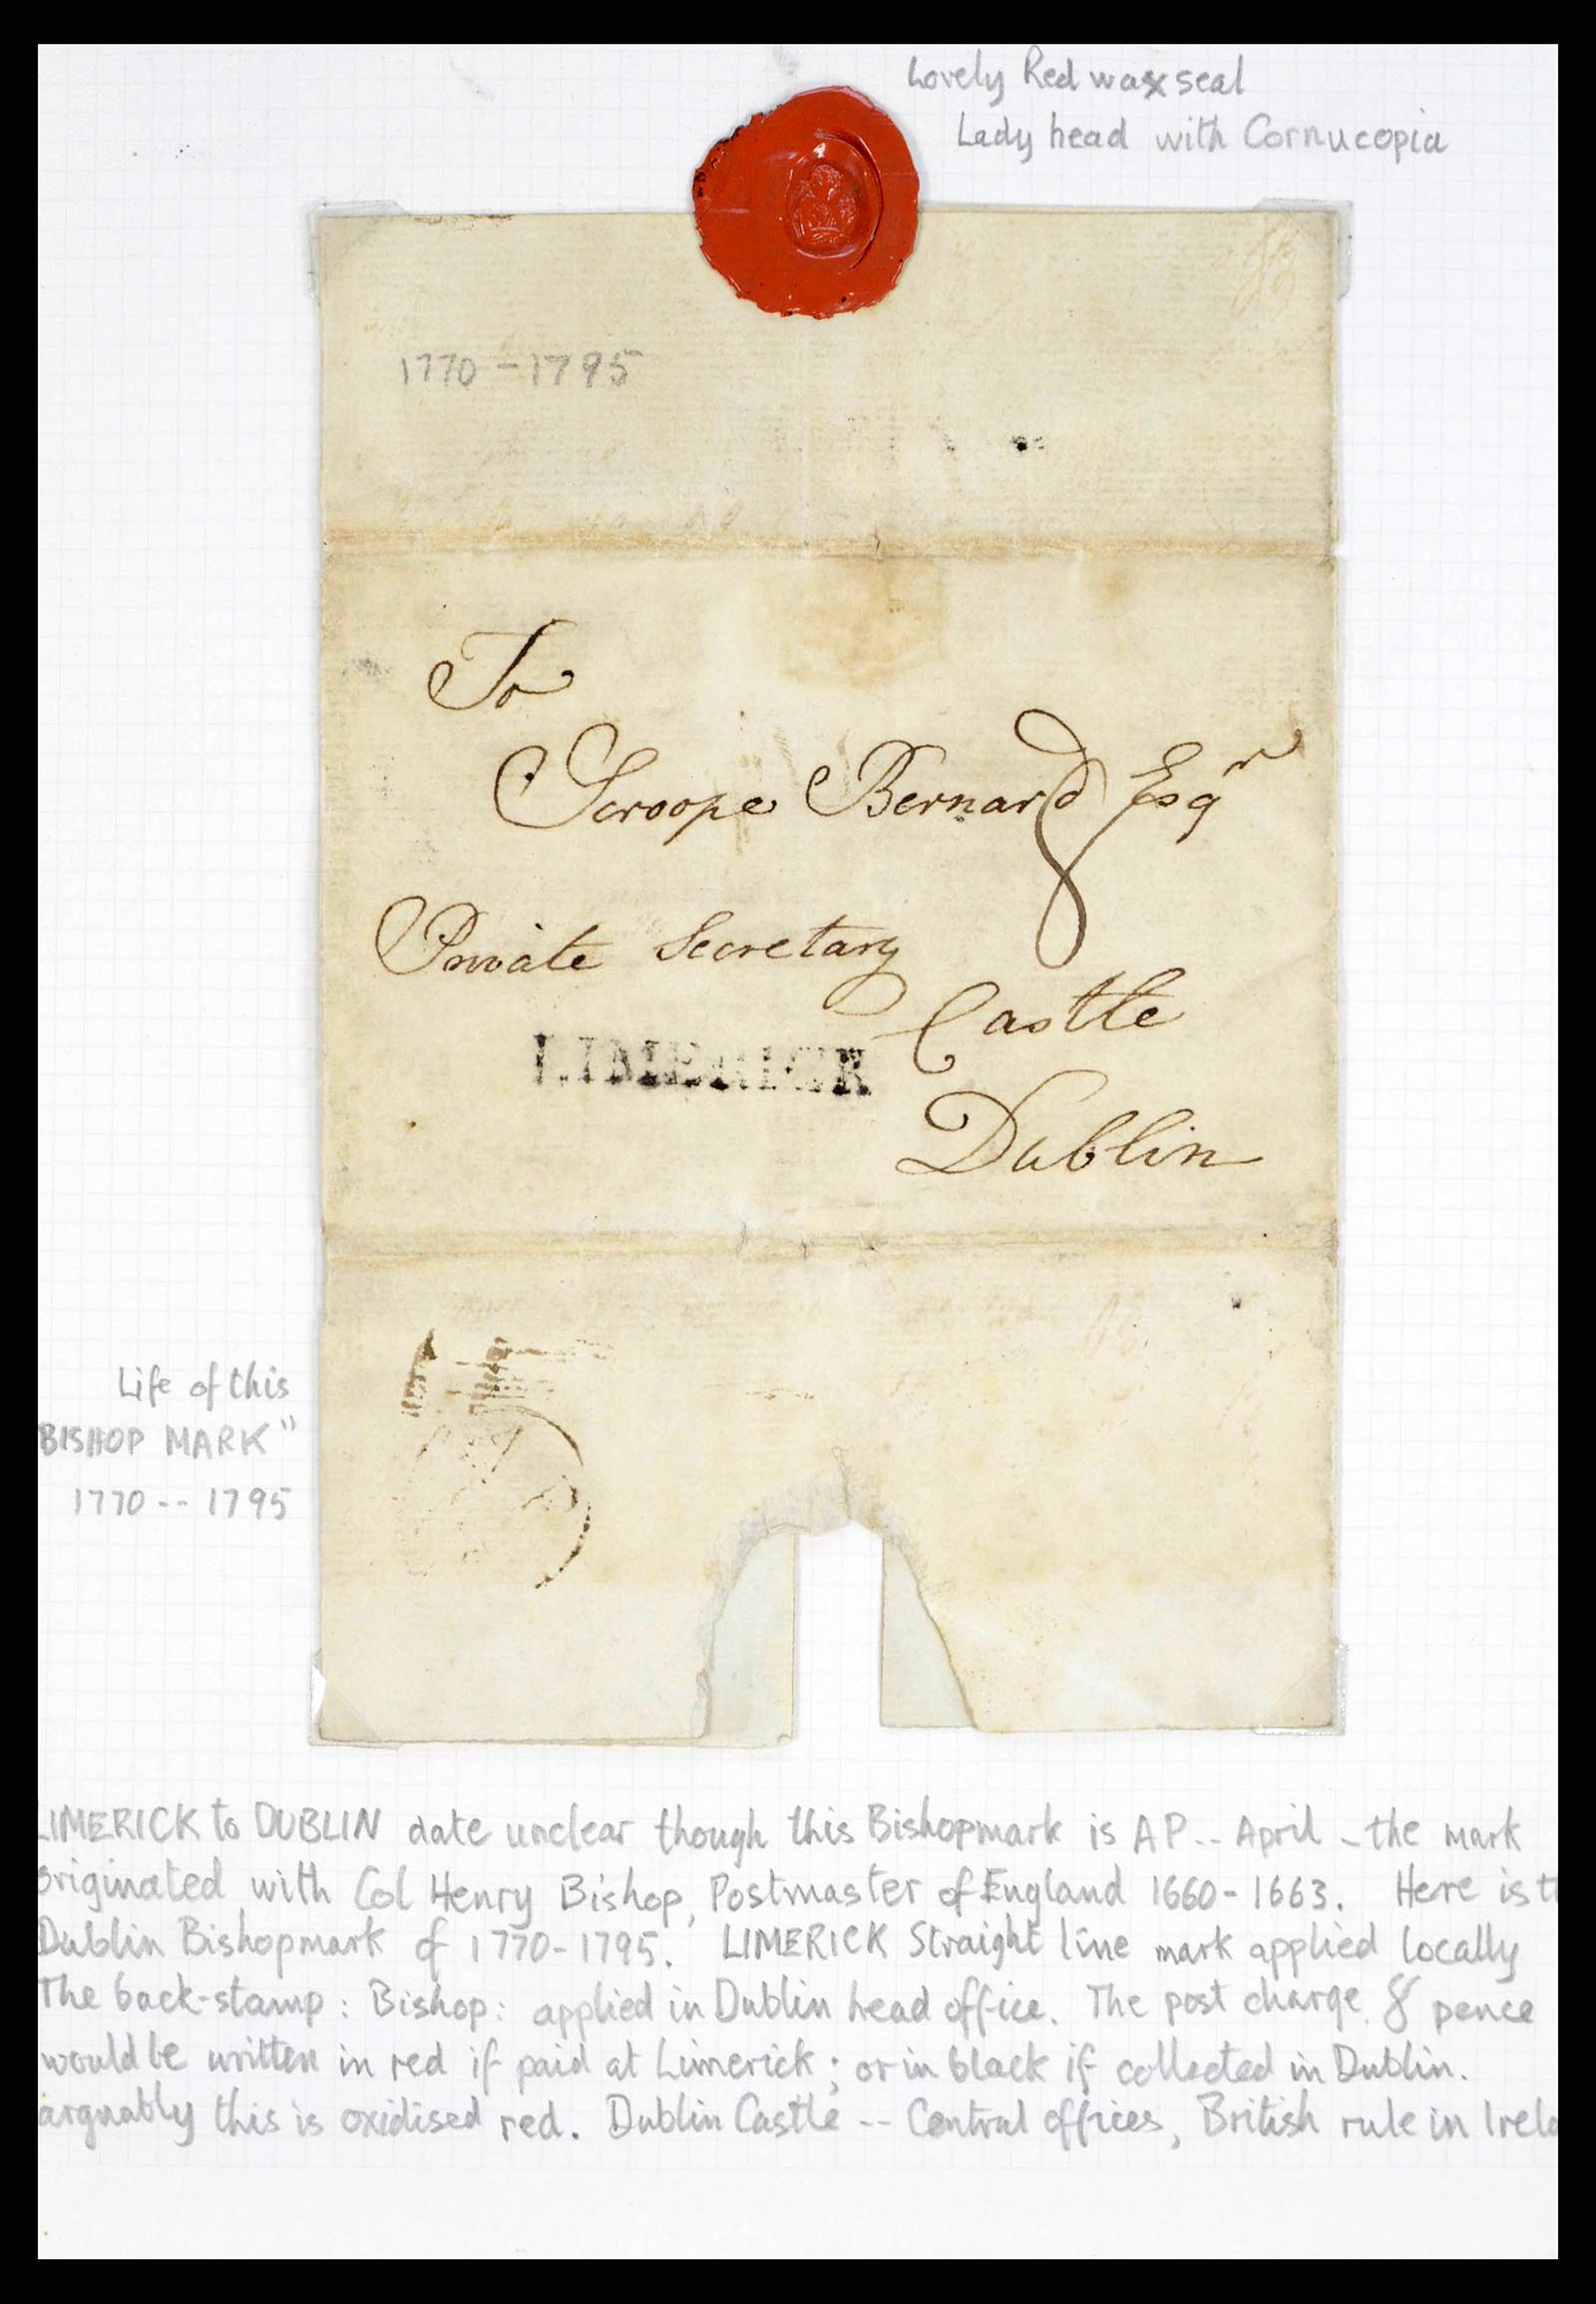 Lovely Red wax seal
Lady head with Cornucopia
1770 - 1795
To
Scroope Bernard Esqr
8
Private Secretary
Castle
LIMERICK
Dublin
Life of this
BISHOP MARK"
1770 -- 1795
LIMERICK to DUBLIN date unclear though this Bishopmark is AP -- April - the mark
originated with Col Henry Bishop, Postmaster of England 1660 - 1663. Here is
Dublin Bishopmark of 1770-1795. LIMERICK Straight line mark applied locally
The back-stamp : Bishop : applied in Dublin head office. The post charge 8 pence
would be written in red if paid at Limerick ; or in black if collected in Dublin.
arguably this is oxidised red. Dublin Castle -- Central offices, British rule in Irela